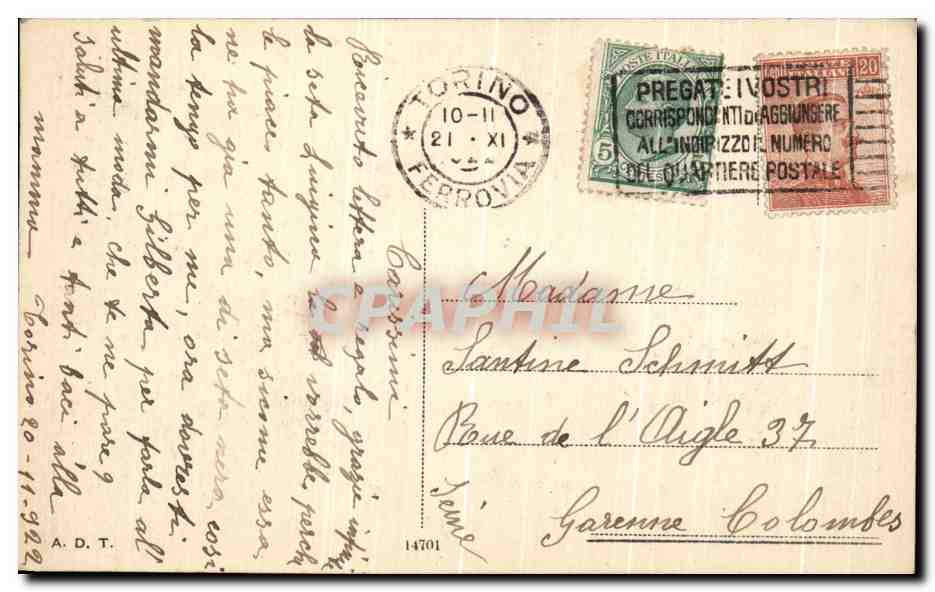 Carissimi
Ricevuto lettera e regalo, grazie infinite
la seta Luigina la vorrebbe, perchè
le piace tanto, ma siccome essa,
ne ha gia una di seta nera, così
la tengo per me, ora dovresti
mandarmi Gilberta per farla al
ultima moda, che te ne pare?
Saluti a tutti e tanti baci alla
mamma Torino 20-11-922
A. D. T.
14701
TORINO
10-11
21 · XI
1922
FERROVIA
POSTE ITALIANE
5
20
PREGATE I VOSTRI
CORRISPONDENTI DI AGGIUNGERE
ALL'INDIRIZZO IL NUMERO
DEL QUARTIERE POSTALE
CPAPHIL
Madame
Santine Schmitt
Rue de l'Aigle 37
Garenne Colombes